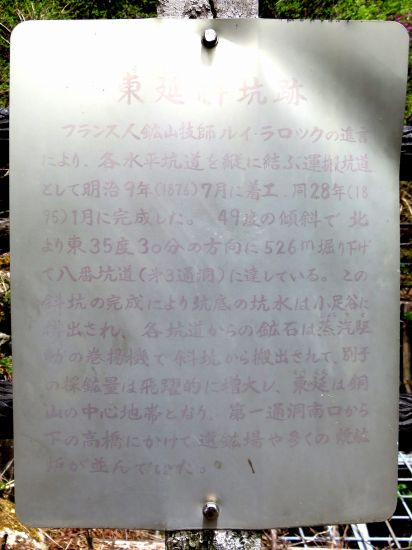 東延斜坑跡
フランス人鉱山技師ルイ・ラロックの進言
により、各水平坑道を縦に結ぶ運搬坑道
として明治9年(1876)7月に着工、同28年(18
95)1月に完成した。 49度の傾斜で 北
より東35度30分の方向に526m掘り下げ
て八番坑道(第3通洞)に達している。この
斜坑の完成により坑底の坑水は小足谷に
排出され、各坑道からの鉱石は蒸汽駆
動の巻揚機で斜坑から搬出されて、別子
の採鉱量は飛躍的に増大し、東延は銅
山の中心地帯となり、第一通洞南口から
下の高橋にかけて選鉱場や多くの焼鉱
炉が並んでいた。